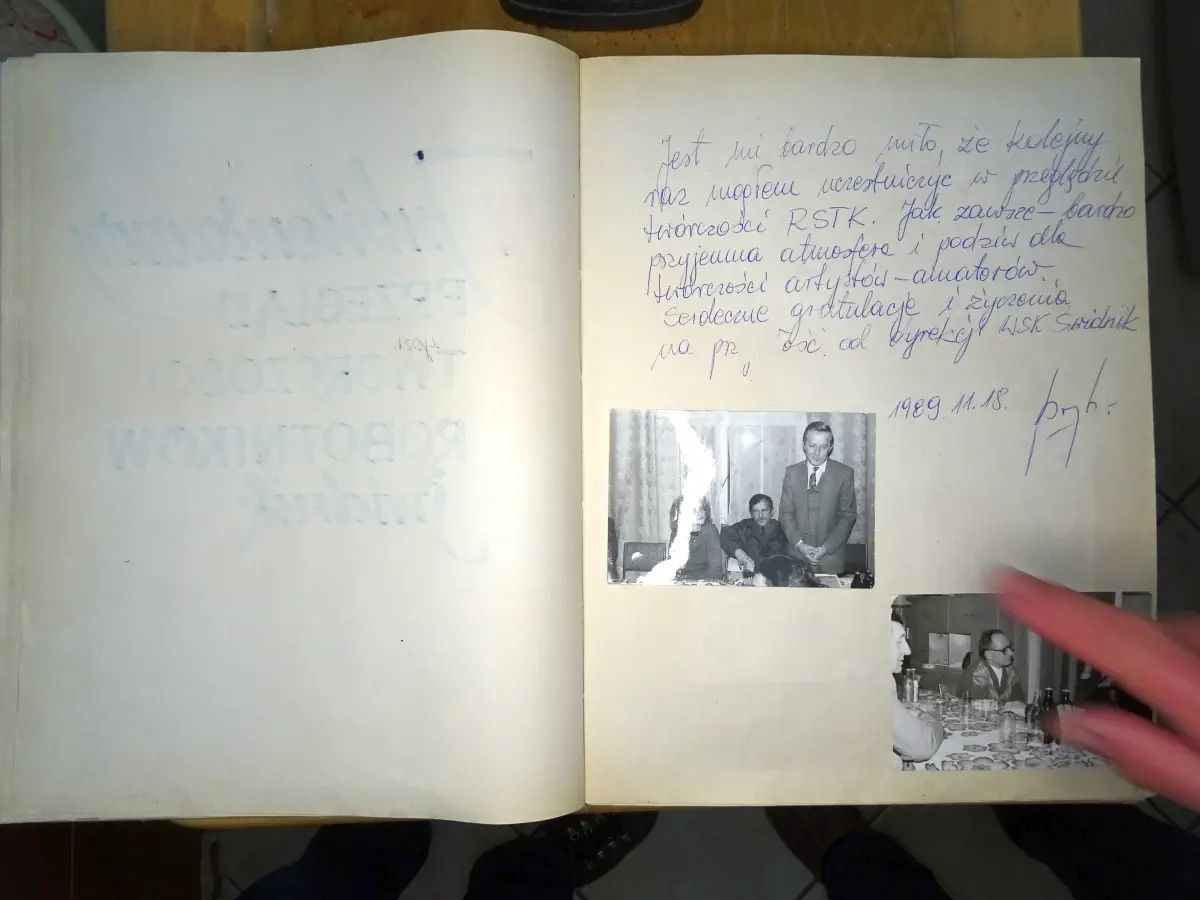 PRZEGLĄD
TWÓRCZOŚCI
ROBOTNIKÓW
Świdnik
Jest mi bardzo miło, że kolejny
raz mogłem uczestniczyć w przeglądzie
twórczości RSTK. Jak zawsze – bardzo
przyjemna atmosfera i podziw dla
twórczości artystów – amatorów.
Serdeczne gratulacje i życzenia
na od dyrekcji WSK Świdnik
1989.11.18.